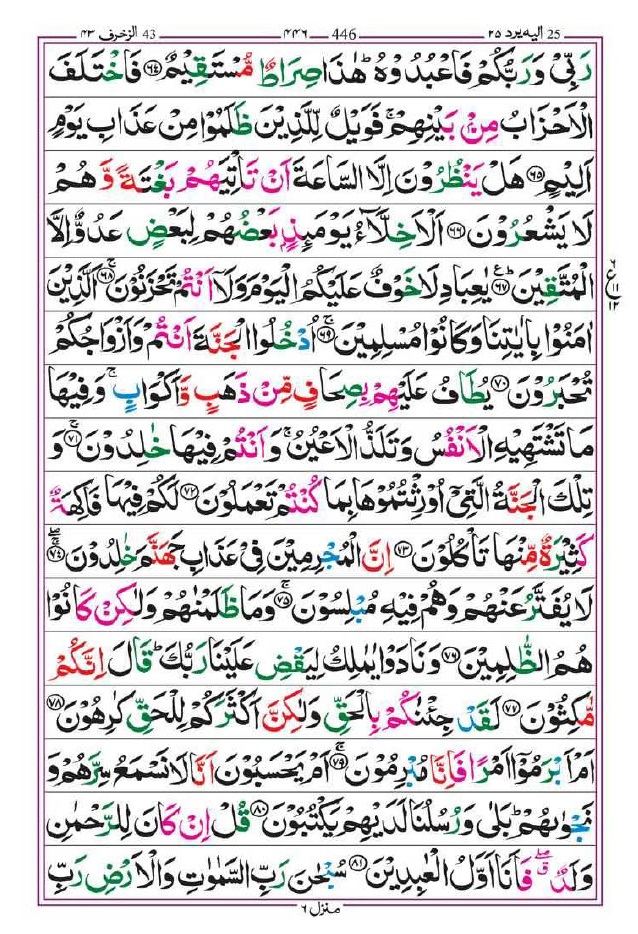 25 الیہ یرد ۲۵ 446 ۴۴۶ 43 الزخرف ۴۳
رَبِّیْ وَرَبُّكُمْ فَاعْبُدُوْهُ ؕ هٰذَا صِرَاطٌ مُّسْتَقِیْمٌ ﴿۶۴﴾ فَاخْتَلَفَ
الْاَحْزَابُ مِنْۢ بَیْنِهِمْ ۚ فَوَیْلٌ لِّلَّذِیْنَ ظَلَمُوْا مِنْ عَذَابِ یَوْمٍ
اَلِیْمٍ ﴿۶۵﴾ هَلْ یَنْظُرُوْنَ اِلَّا السَّاعَةَ اَنْ تَاْتِیَهُمْ بَغْتَةً وَّ هُمْ
لَا یَشْعُرُوْنَ ﴿۶۶﴾ اَلْاَخِلَّآءُ یَوْمَىِٕذٍۭ بَعْضُهُمْ لِبَعْضٍ عَدُوٌّ اِلَّا
الْمُتَّقِیْنَ ﴿۶۷﴾ؕ۠ یٰعِبَادِ لَا خَوْفٌ عَلَیْكُمُ الْیَوْمَ وَلَاۤ اَنْتُمْ تَحْزَنُوْنَ ﴿۶۸﴾ۚ اَلَّذِیْنَ
۶ ع ۱۱ ۱۲
اٰمَنُوْا بِاٰیٰتِنَا وَكَانُوْا مُسْلِمِیْنَ ﴿۶۹﴾ۚ اُدْخُلُوا الْجَنَّةَ اَنْتُمْ وَاَزْوَاجُكُمْ
تُحْبَرُوْنَ ﴿۷۰﴾ یُطَافُ عَلَیْهِمْ بِصِحَافٍ مِّنْ ذَهَبٍ وَّاَكْوَابٍ ۚ وَفِیْهَا
مَا تَشْتَهِیْهِ الْاَنْفُسُ وَتَلَذُّ الْاَعْیُنُ ۚ وَاَنْتُمْ فِیْهَا خٰلِدُوْنَ ﴿۷۱﴾ۚ وَ
تِلْكَ الْجَنَّةُ الَّتِیْۤ اُوْرِثْتُمُوْهَا بِمَا كُنْتُمْ تَعْمَلُوْنَ ﴿۷۲﴾ لَكُمْ فِیْهَا فَاكِهَةٌ
كَثِیْرَةٌ مِّنْهَا تَاْكُلُوْنَ ﴿۷۳﴾ اِنَّ الْمُجْرِمِیْنَ فِیْ عَذَابِ جَهَنَّمَ خٰلِدُوْنَ ﴿۷۴﴾ۚۖ
لَا یُفَتَّرُ عَنْهُمْ وَهُمْ فِیْهِ مُبْلِسُوْنَ ﴿۷۵﴾ۚ وَمَا ظَلَمْنٰهُمْ وَلٰكِنْ كَانُوْا
هُمُ الظّٰلِمِیْنَ ﴿۷۶﴾ وَنَادَوْا یٰمٰلِكُ لِیَقْضِ عَلَیْنَا رَبُّكَ ؕ قَالَ اِنَّكُمْ
مّٰكِثُوْنَ ﴿۷۷﴾ لَقَدْ جِئْنٰكُمْ بِالْحَقِّ وَلٰكِنَّ اَكْثَرَكُمْ لِلْحَقِّ كٰرِهُوْنَ ﴿۷۸﴾
اَمْ اَبْرَمُوْۤا اَمْرًا فَاِنَّا مُبْرِمُوْنَ ﴿۷۹﴾ۚ اَمْ یَحْسَبُوْنَ اَنَّا لَا نَسْمَعُ سِرَّهُمْ وَ
نَجْوٰىهُمْ ؕ بَلٰی وَرُسُلُنَا لَدَیْهِمْ یَكْتُبُوْنَ ﴿۸۰﴾ قُلْ اِنْ كَانَ لِلرَّحْمٰنِ
وَلَدٌ ۖۗ فَاَنَا اَوَّلُ الْعٰبِدِیْنَ ﴿۸۱﴾ سُبْحٰنَ رَبِّ السَّمٰوٰتِ وَالْاَرْضِ رَبِّ
منزل ۶